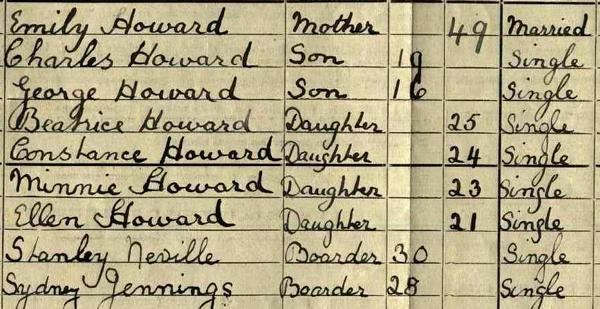 Emily Howard Mother 49 Married
Charles Howard Son 19 Single
George Howard Son 16 Single
Beatrice Howard Daughter 25 Single
Constance Howard Daughter 24 Single
Minnie Howard Daughter 23 Single
Ellen Howard Daughter 21 Single
Stanley Neville Boarder 30 Single
Sydney Jennings Boarder 28 Single